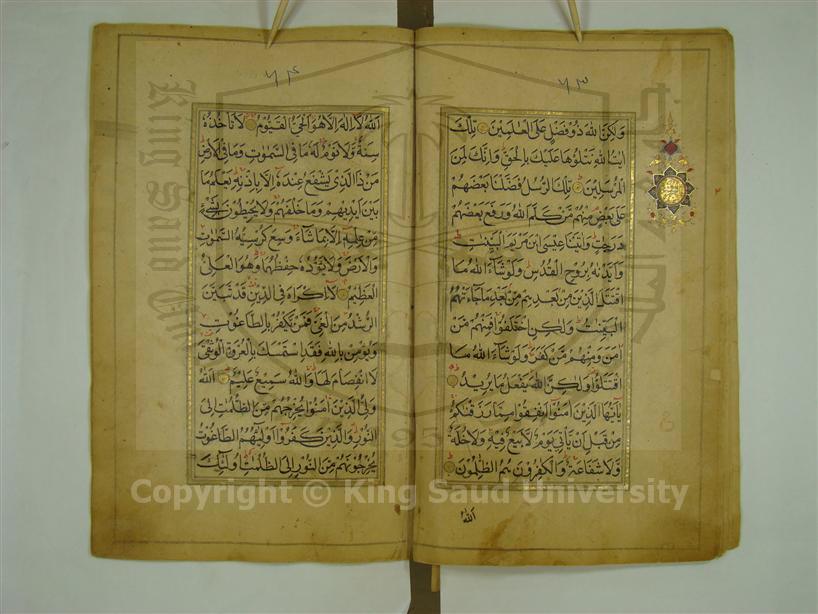 ٦٣
ولكن الله ذو فضل على العلمين تلك
ايت الله نتلوها عليك بالحق وانك لمن
المرسلين تلك الرسل فضلنا بعضهم
على بعض منهم من كلم الله ورفع بعضهم
درجت واتينا عيسى ابن مريم البينت
وايدنه بروح القدس ولو شاء الله ما
اقتتل الذين من بعدهم من بعد ما جاءتهم
البينت ولكن اختلفوا فمنهم من
امن ومنهم من كفر ولو شاء الله ما
اقتتلوا ولكن الله يفعل ما يريد
يايها الذين امنوا انفقوا مما رزقنكم
من قبل ان ياتي يوم لا بيع فيه ولا خلة
ولا شفاعة والكفرون هم الظلمون
الله
٦٤
الله لا اله الا هو الحي القيوم لا تاخذه
سنة ولا نوم له ما في السموت وما في الارض
من ذا الذي يشفع عنده الا باذنه يعلم ما
بين ايديهم وما خلفهم ولا يحيطون بشيء
من علمه الا بما شاء وسع كرسيه السموت
والارض ولا يؤده حفظهما وهو العلي
العظيم لا اكراه في الدين قد تبين
الرشد من الغي فمن يكفر بالطاغوت
ويؤمن بالله فقد استمسك بالعروة الوثقى
لا انفصام لها والله سميع عليم الله
ولي الذين امنوا يخرجهم من الظلمت الى
النور والذين كفروا اوليؤهم الطاغوت
يخرجونهم من النور الى الظلمت اولئك
King Saud University
Copyright © King Saud University